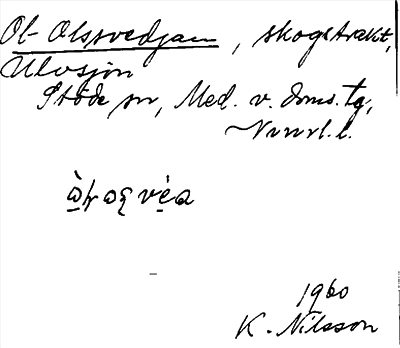 Ol-Olsvedjan, skogstrakt,
Ulvsjön
Stöde sn, Med. v. doms. tg,
Vnrl. l.
1960
K. Nilsson